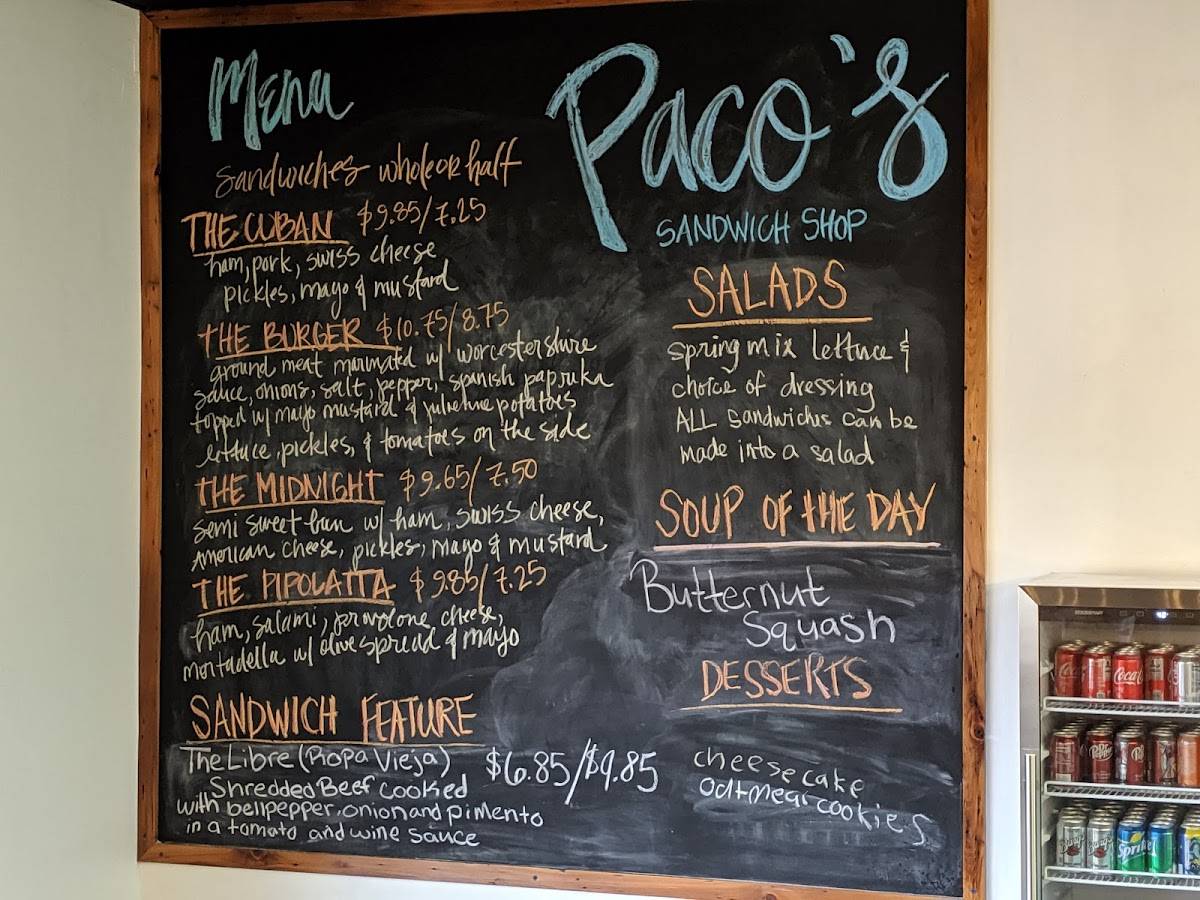 Menu
Sandwiches whole or half
THE CUBAN $9.85/7.25
ham, pork, swiss cheese
pickles, mayo & mustard
THE BURGER $10.75/8.75
ground meat marinated w/ worcestershire
sauce, onions, salt, pepper, spanish papruka
topped w/ mayo mustard & julienne potatoes
lettuce, pickles, & tomatoes on the side
THE MIDNIGHT $9.65/7.50
semi sweet bun w/ ham, swiss cheese,
American cheese, pickles, mayo & mustard
THE PIPOLATTA $9.85/7.25
ham, salami, provolone cheese,
mortadella w/ olive spread & mayo
SANDWICH FEATURE
The Libre (Ropa Vieja) $6.85/$9.85
Shredded Beef cooked
with bellpepper, onion and pimento
in a tomato and wine sauce
Paco's
SANDWICH SHOP
SALADS
spring mix lettuce &
choice of dressing
ALL sandwiches can be
made into a salad
SOUP OF THE DAY
Butternut
Squash
DESSERTS
cheesecake
oatmear cookies
Coca
Pepper
Sprite